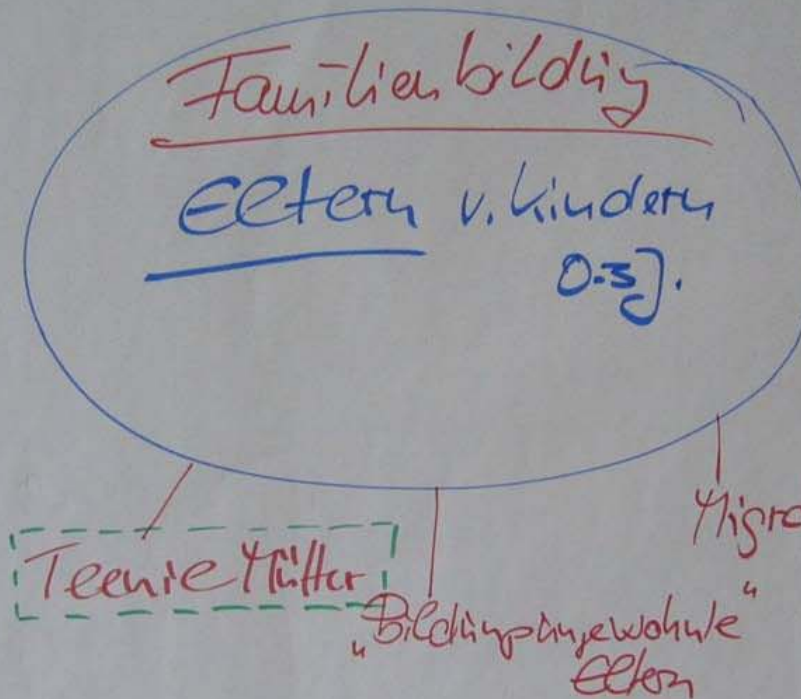 Familienbildung
Eltern v. Kindern
0-3J.
Teenie Mütter
Migra
„Bildungsungewohnte"
Eltern